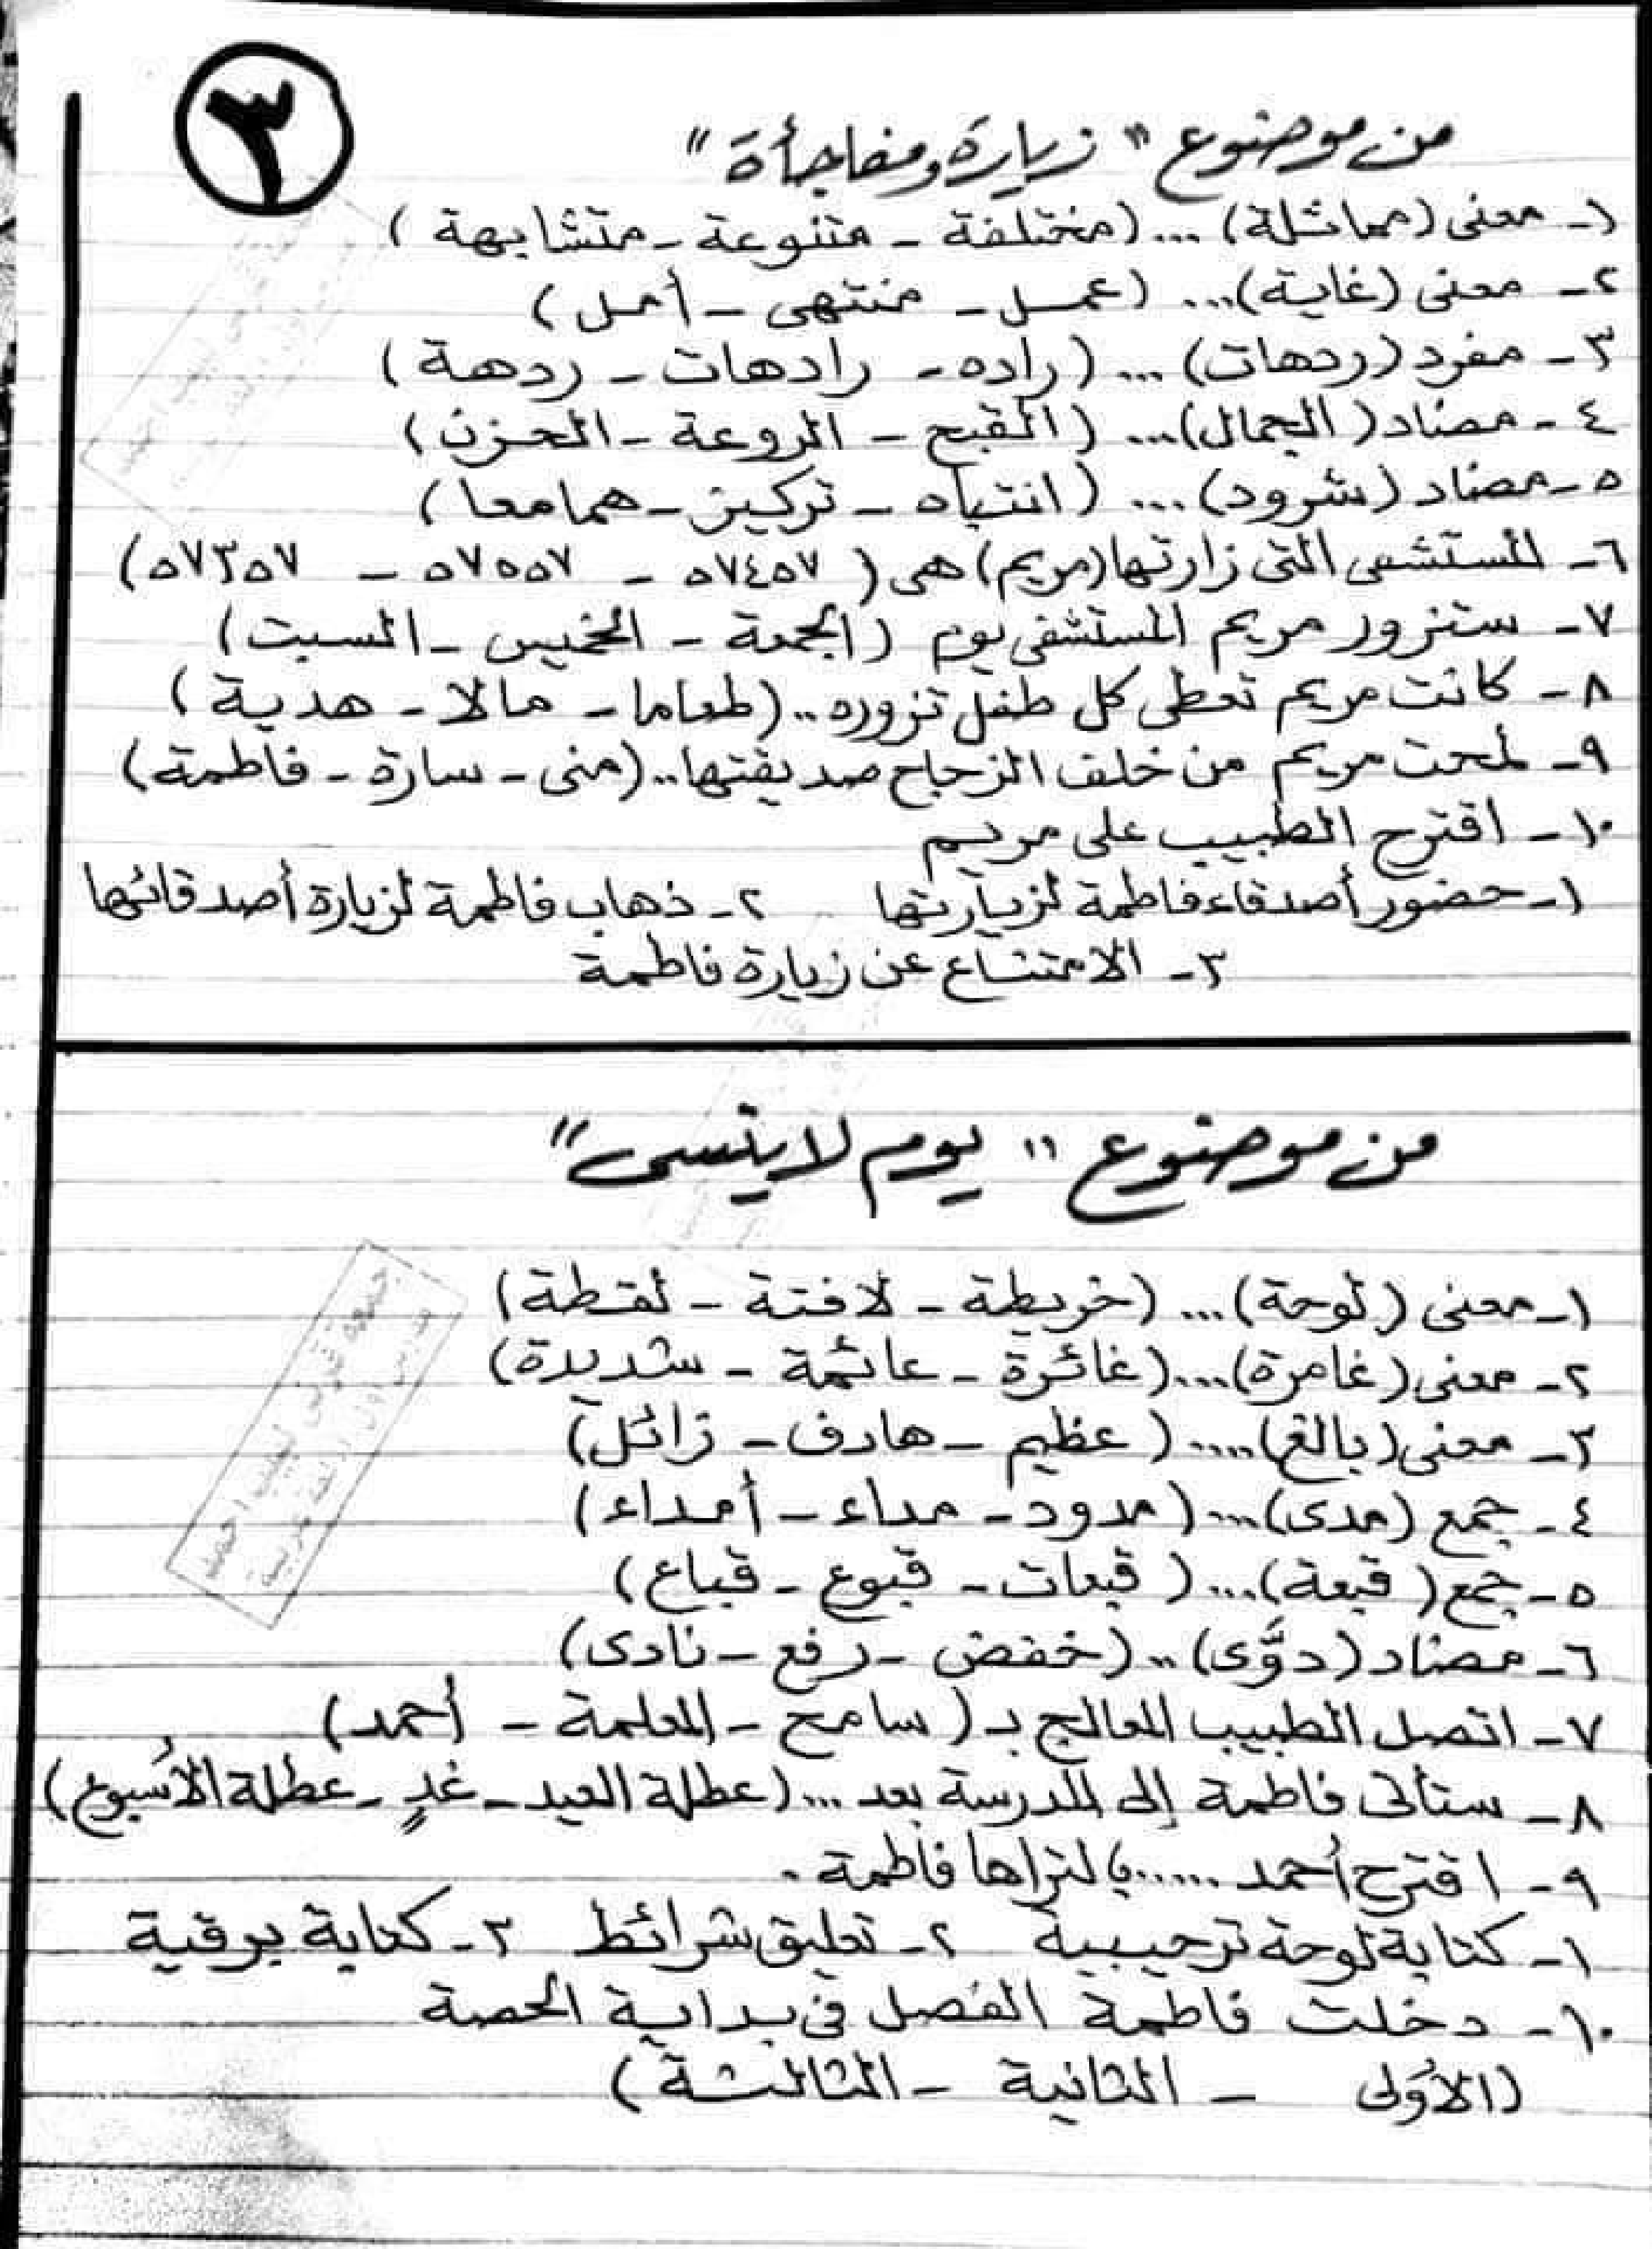 ٣
من موضوع " زيارة ومفاجأة "
١- معنى (مماثلة) ... (مختلفة - متنوعة - متشابهة )
٢- معنى (غاية) ... (عمل - منتهى - أمل )
٣- مفرد (ردهات) ... (راده - رادهات - ردهة )
٤- مضاد ( الجمال) ... ( القبح - الروعة - الحزن )
٥- مضاد (شرود) ... ( انتباه - تركيز - هما معا )
٦- المستشفى التى زارتها (مريم) هى ( ٥٧٤٥٧ - ٥٧٥٥٧ - ٥٧٣٥٧)
٧- ستزور مريم المستشفى يوم (الجمعة - الخميس - السبت )
٨- كانت مريم تعطى كل طفل تزوره .. (طعاما - مالا - هدية )
٩- لمحت مريم من خلف الزجاج صديقتها .. (منى - سارة - فاطمة)
١٠- اقترح الطبيب على مريم
١- حضور أصدقاء فاطمة لزيارتها ٢- ذهاب فاطمة لزيارة أصدقائها
٣- الامتناع عن زيارة فاطمة
من موضوع " يوم لا ينسى "
١- معنى (لوحة) ... (خريطة - لافتة - لقطة)
٢- معنى (غامرة) .... (غائرة - عائمة - شديدة)
٣- معنى (بالغ) ..... ( عظيم - هادف - زائل)
٤- جمع (مدى) .... ( مدود - مداء - أمداء )
٥- جمع ( قبعة) ... ( قبعات - قبوع - قباع )
٦- مضاد (دوَّى) .. (خفض - رفع - نادى)
٧- اتصل الطبيب المعالج بـ ( سامح - المعلمة - أحمد)
٨- ستأتى فاطمة إلى المدرسة بعد ... (عطلة العيد - غدٍ - عطلة الأسبوع)
٩- اقترح أحمد ...... لتراها فاطمة .
١- كتابة لوحة ترحيبية ٢- تعليق شرائط ٣- كتابة برقية
١٠- دخلت فاطمة الفصل فى بداية الحصة
(الأولى - الثانية - الثالثة )